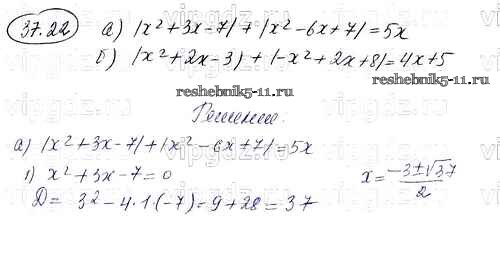 37.22 а) |x² + 3x - 7| + |x² - 6x + 7| = 5x
б) |x² + 2x - 3| + |-x² + 2x + 8| = 4x + 5
reshebnik5-11.ru
reshebnik5-11.ru
Решение.
а) |x² + 3x - 7| + |x² - 6x + 7| = 5x
1) x² + 3x - 7 = 0
x = -3±√37/2
D = 3² - 4·1·(-7) = 9 + 28 = 37